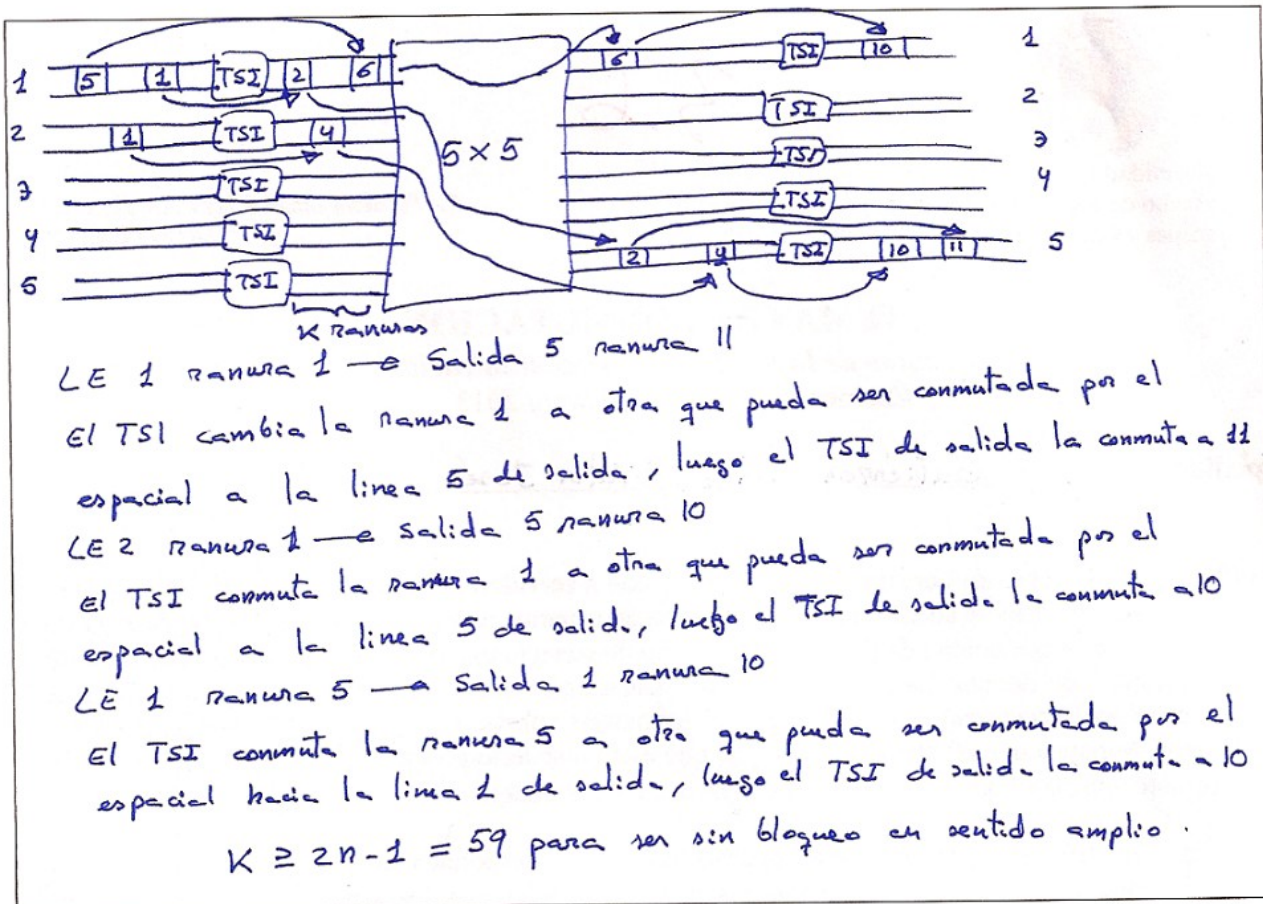 1 5 1 TSI 2 6 6 TSI 10 1
2 1 TSI 4 5×5 TSI 2
3 TSI TSI 3
4 TSI TSI 4
5 TSI 2 4 TSI 10 11 5
K Ranuras
LE 1 ranura 1 → Salida 5 ranura 11
El TSI cambia la ranura 1 a otra que pueda ser conmutada por el
espacial a la linea 5 de salida, luego el TSI de salida la conmuta a 11
LE 2 ranura 1 → Salida 5 ranura 10
El TSI conmuta la ranura 1 a otra que pueda ser conmutada por el
espacial a la linea 5 de salida, luego el TSI de salida la conmuta a 10
LE 1 ranura 5 → Salida 1 ranura 10
El TSI conmuta la ranura 5 a otra que pueda ser conmutada por el
espacial hacia la linea 1 de salida, luego el TSI de salida la conmuta a 10
K ≥ 2n-1 = 59 para ser sin bloqueo en sentido amplio.